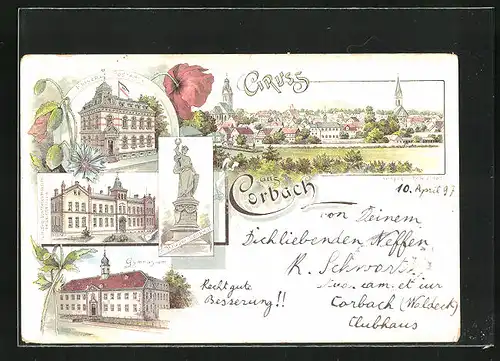 Gruss
aus
Corbach
Gymnasium
10. April 97
von Deinem
Dichliebenden Neffen
K. Schwartz
Recht gute
Besserung!!
et cur
Corbach (Waldeck)
Clubhaus